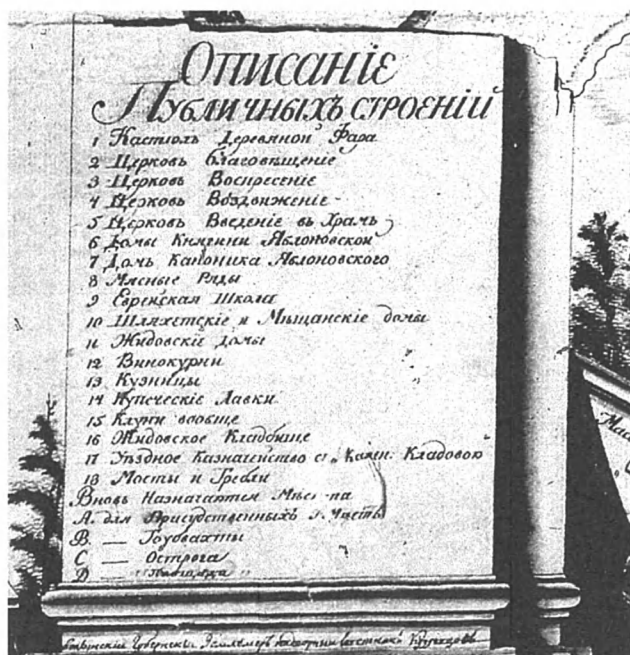 Описаніе
Публичныхъ строеніи
1 Кастіолъ Деревяной Фара
2 Церковь Благовѣщение
3 Церковь Воспресение
4 Церковь Воздвижение
5 Церковь Введение въ Храмъ
6 Домы Княгини Яблоновской
7 Домъ Каноника Яблоновского
8 Мясные Ряды
9 Еврейская Школа
10 Шляхетскіе и Мѣщанскіе домы
11 Жидовскіе домы
12 Винокурни
13 Кузницы
14 Купеческіе Лавки
15 Клуни вообще
16 Жидовское Кладбище
17 Уѣздное Казначейство с Камен: Кладовою
18 Мосты и Гребли
Вновь Назначаются Мѣста
А. для Присудственныхъ Часть
В. — Гоубвахты
С — Острога
D —
Губернскіи Землемѣръ
Мас